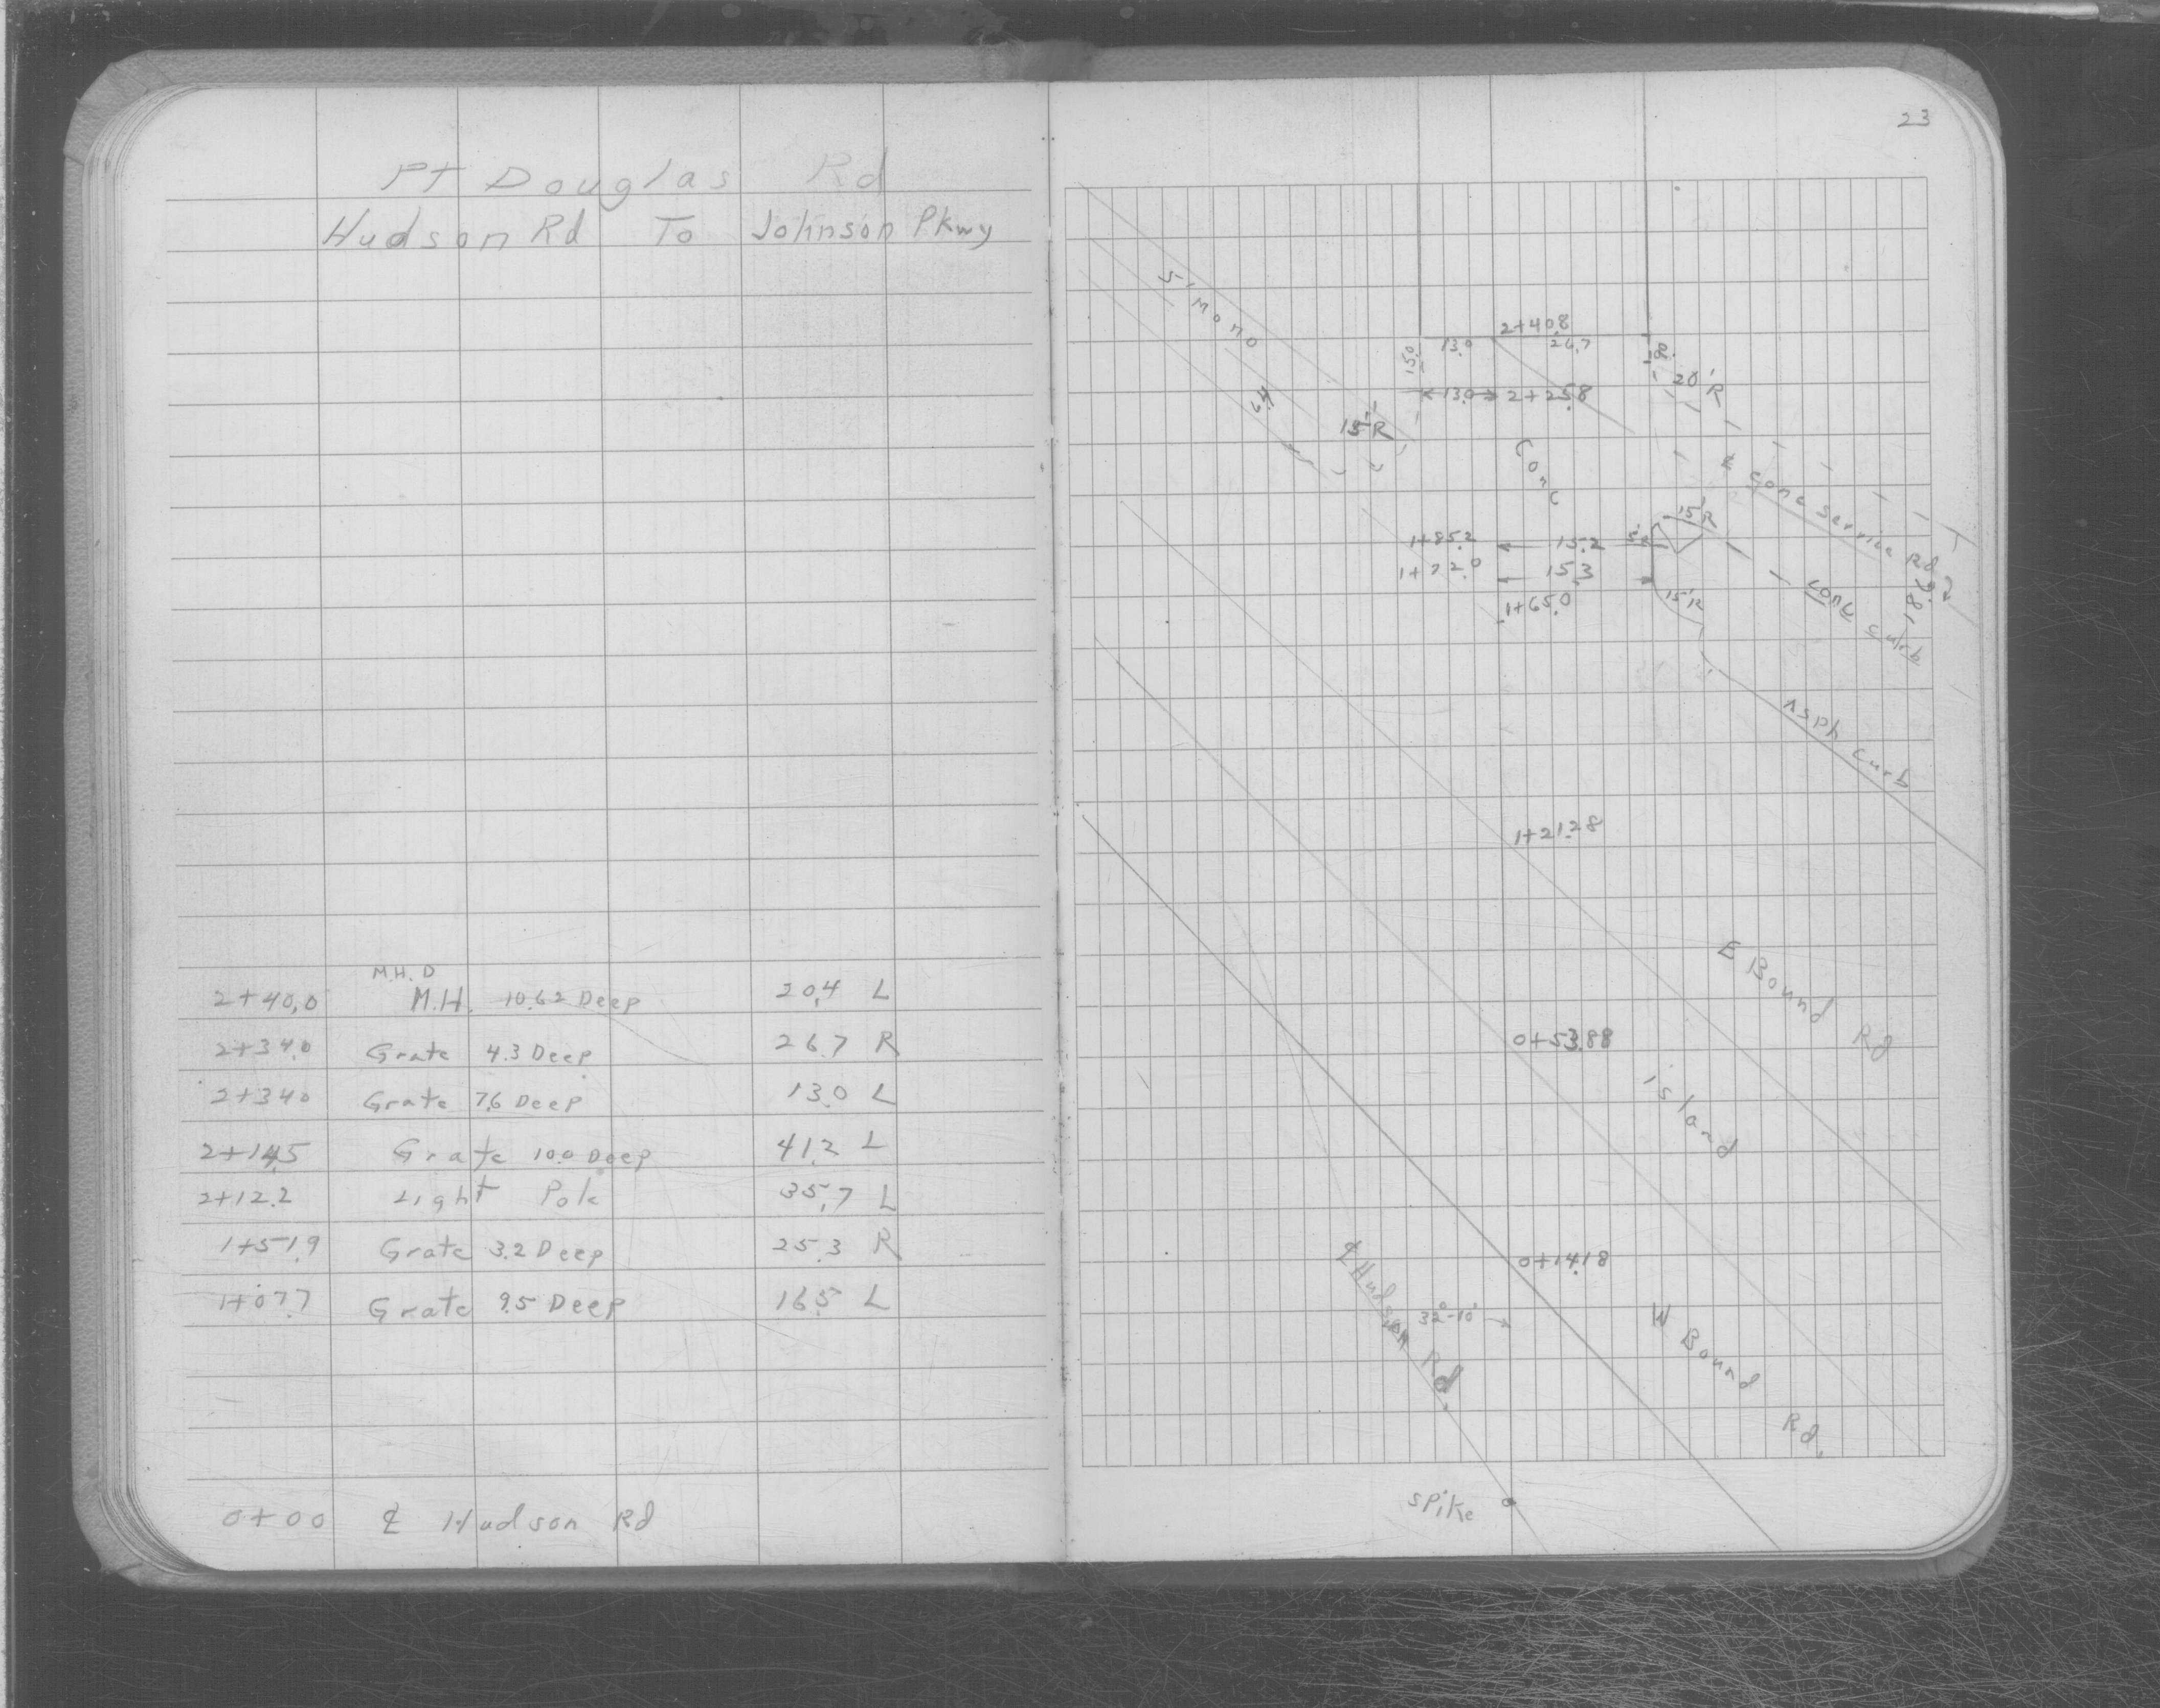 Pt Douglas Rd
Hudson Rd To Johnson Pkwy
M.H. D
2+40.0 M.H. 10.62 Deep 20.4 L
2+34.0 Grate 4.3 Deep 26.7 R
2+34.0 Grate 7.6 Deep 13.0 L
2+14.5 Grate 10.0 Deep 41.2 L
2+12.2 Light Pole 35.7 L
1+51.9 Grate 3.2 Deep 25.3 R
1+07.7 Grate 9.5 Deep 16.5 L
0+00 ℄ Hudson Rd
23
5' mono
2+40.8
15.0 13.0 26.7
20' R
13.0 2+25.8
6.4
15' R
Conc
Conc service Rd
15' R
1+85.2 15.2
1+72.0 15.3
1+65.0
15' R
Conc curb
Asph curb
1+21.28
E Bound Rd
0+53.88
island
0+14.18
℄ Hudson Rd.
32°-10'
W Bound Rd.
spike